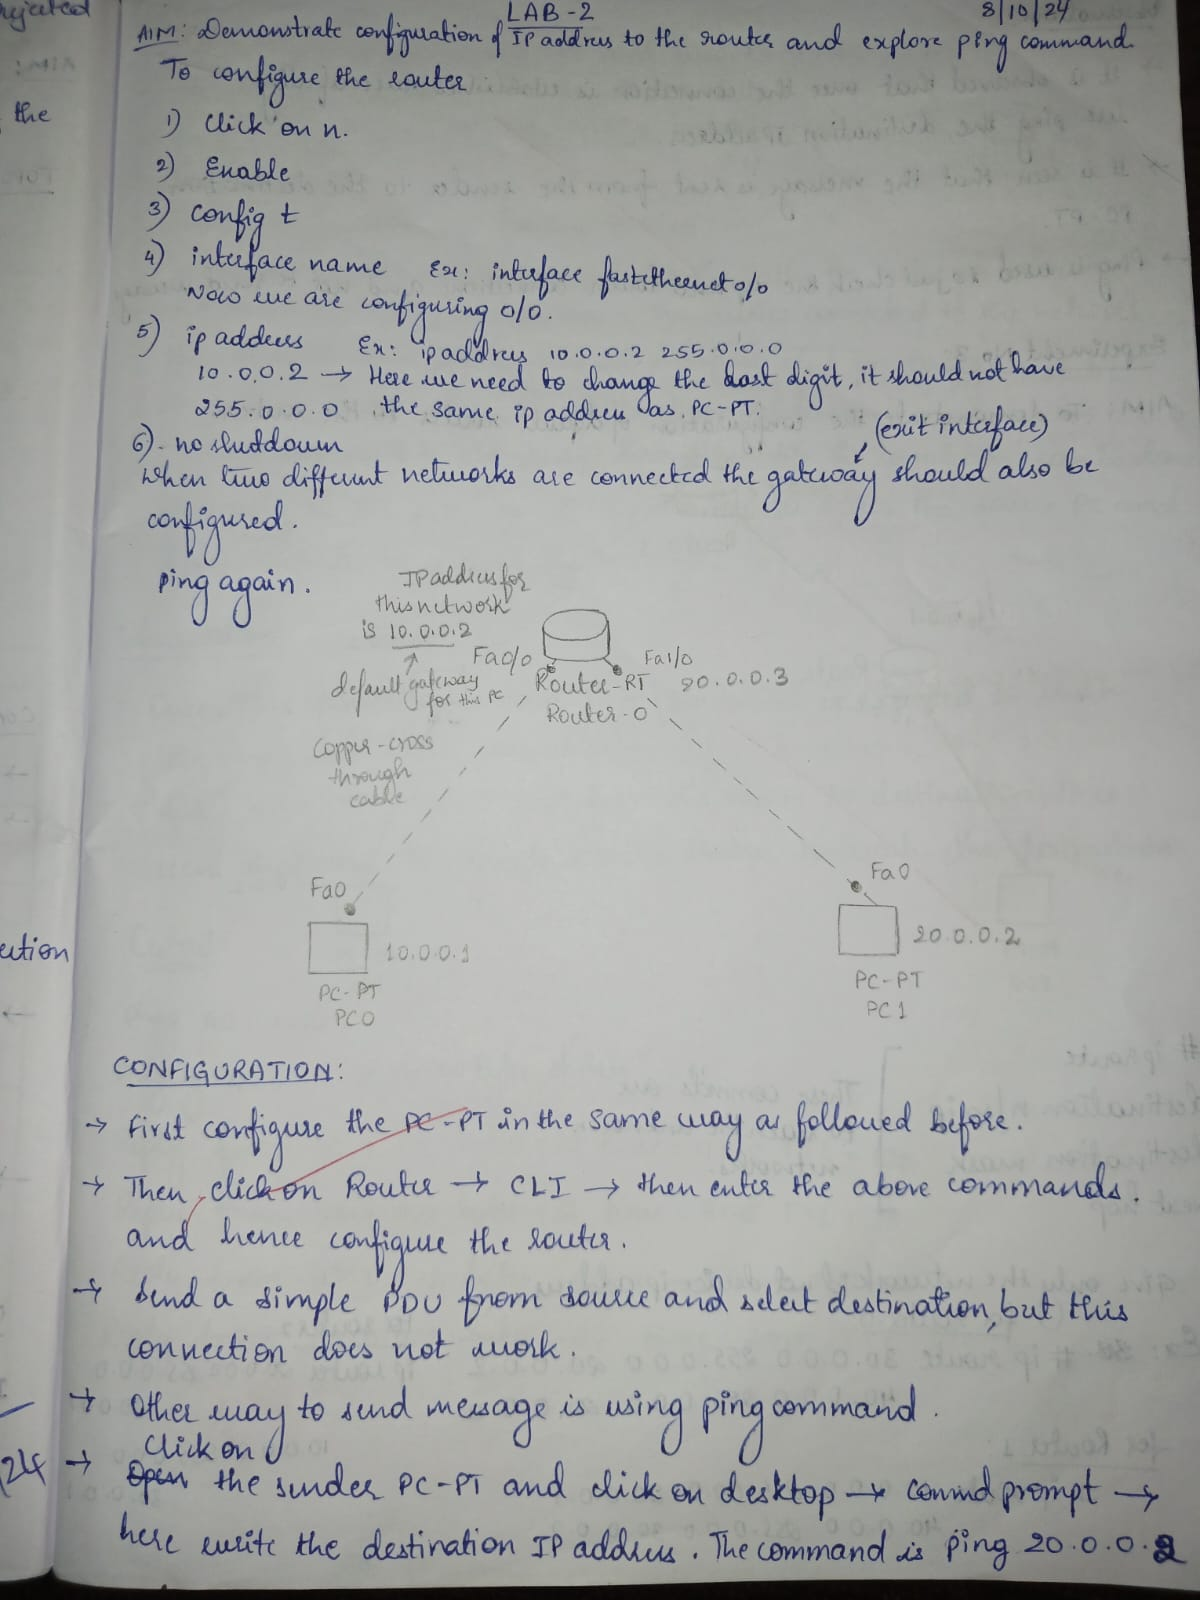 rejected
the
ution
24
LAB-2
8/10/24
AIM: Demonstrate configuration of IP address to the router and explore ping command.
To configure the router
1) Click on n.
2) Enable
3) config t
4) interface name Ex: interface fastethernet 0/0
Now we are configuring 0/0.
5) ip address Ex: ip address 10.0.0.2 255.0.0.0
10.0.0.2 → Here we need to change the last digit, it should not have
255.0.0.0 the same ip address as PC-PT.
6) no shutdown
(exit interface)
When two different networks are connected the gateway should also be
configured.
ping again.
IP address for
this network
is 10.0.0.2
default gateway
for this PC
Fa0/0
Fa1/0
Router-RT
20.0.0.3
Router-0
Copper-cross
through
cable
Fa0
Fa0
10.0.0.1
20.0.0.2
PC-PT
PC0
PC-PT
PC1
CONFIGURATION:
→ First configure the PC-PT in the same way as followed before.
→ Then click on Router → CLI → then enter the above commands.
and hence configure the router.
→ Send a simple PDU from source and select destination, but this
connection does not work.
→ Other way to send message is using ping command.
Click on
→ Open the sender PC-PT and click on desktop → commd prompt →
here write the destination IP address. The command is ping 20.0.0.2